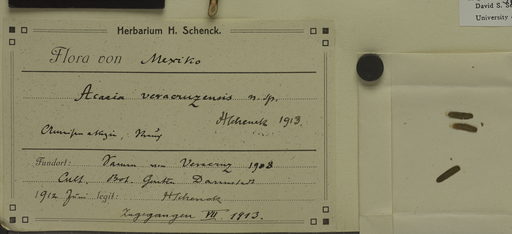 Herbarium H. Schenck.
Flora von Mexiko
Acacia veracruzensis n. sp.
HSchenck 1913.
Fundort: Samen von Veracruz 1908
Cult. Bot. Garten Darmstadt
1912 Juni legit: HSchenck
Eingegangen VII 1913.
David S.
University